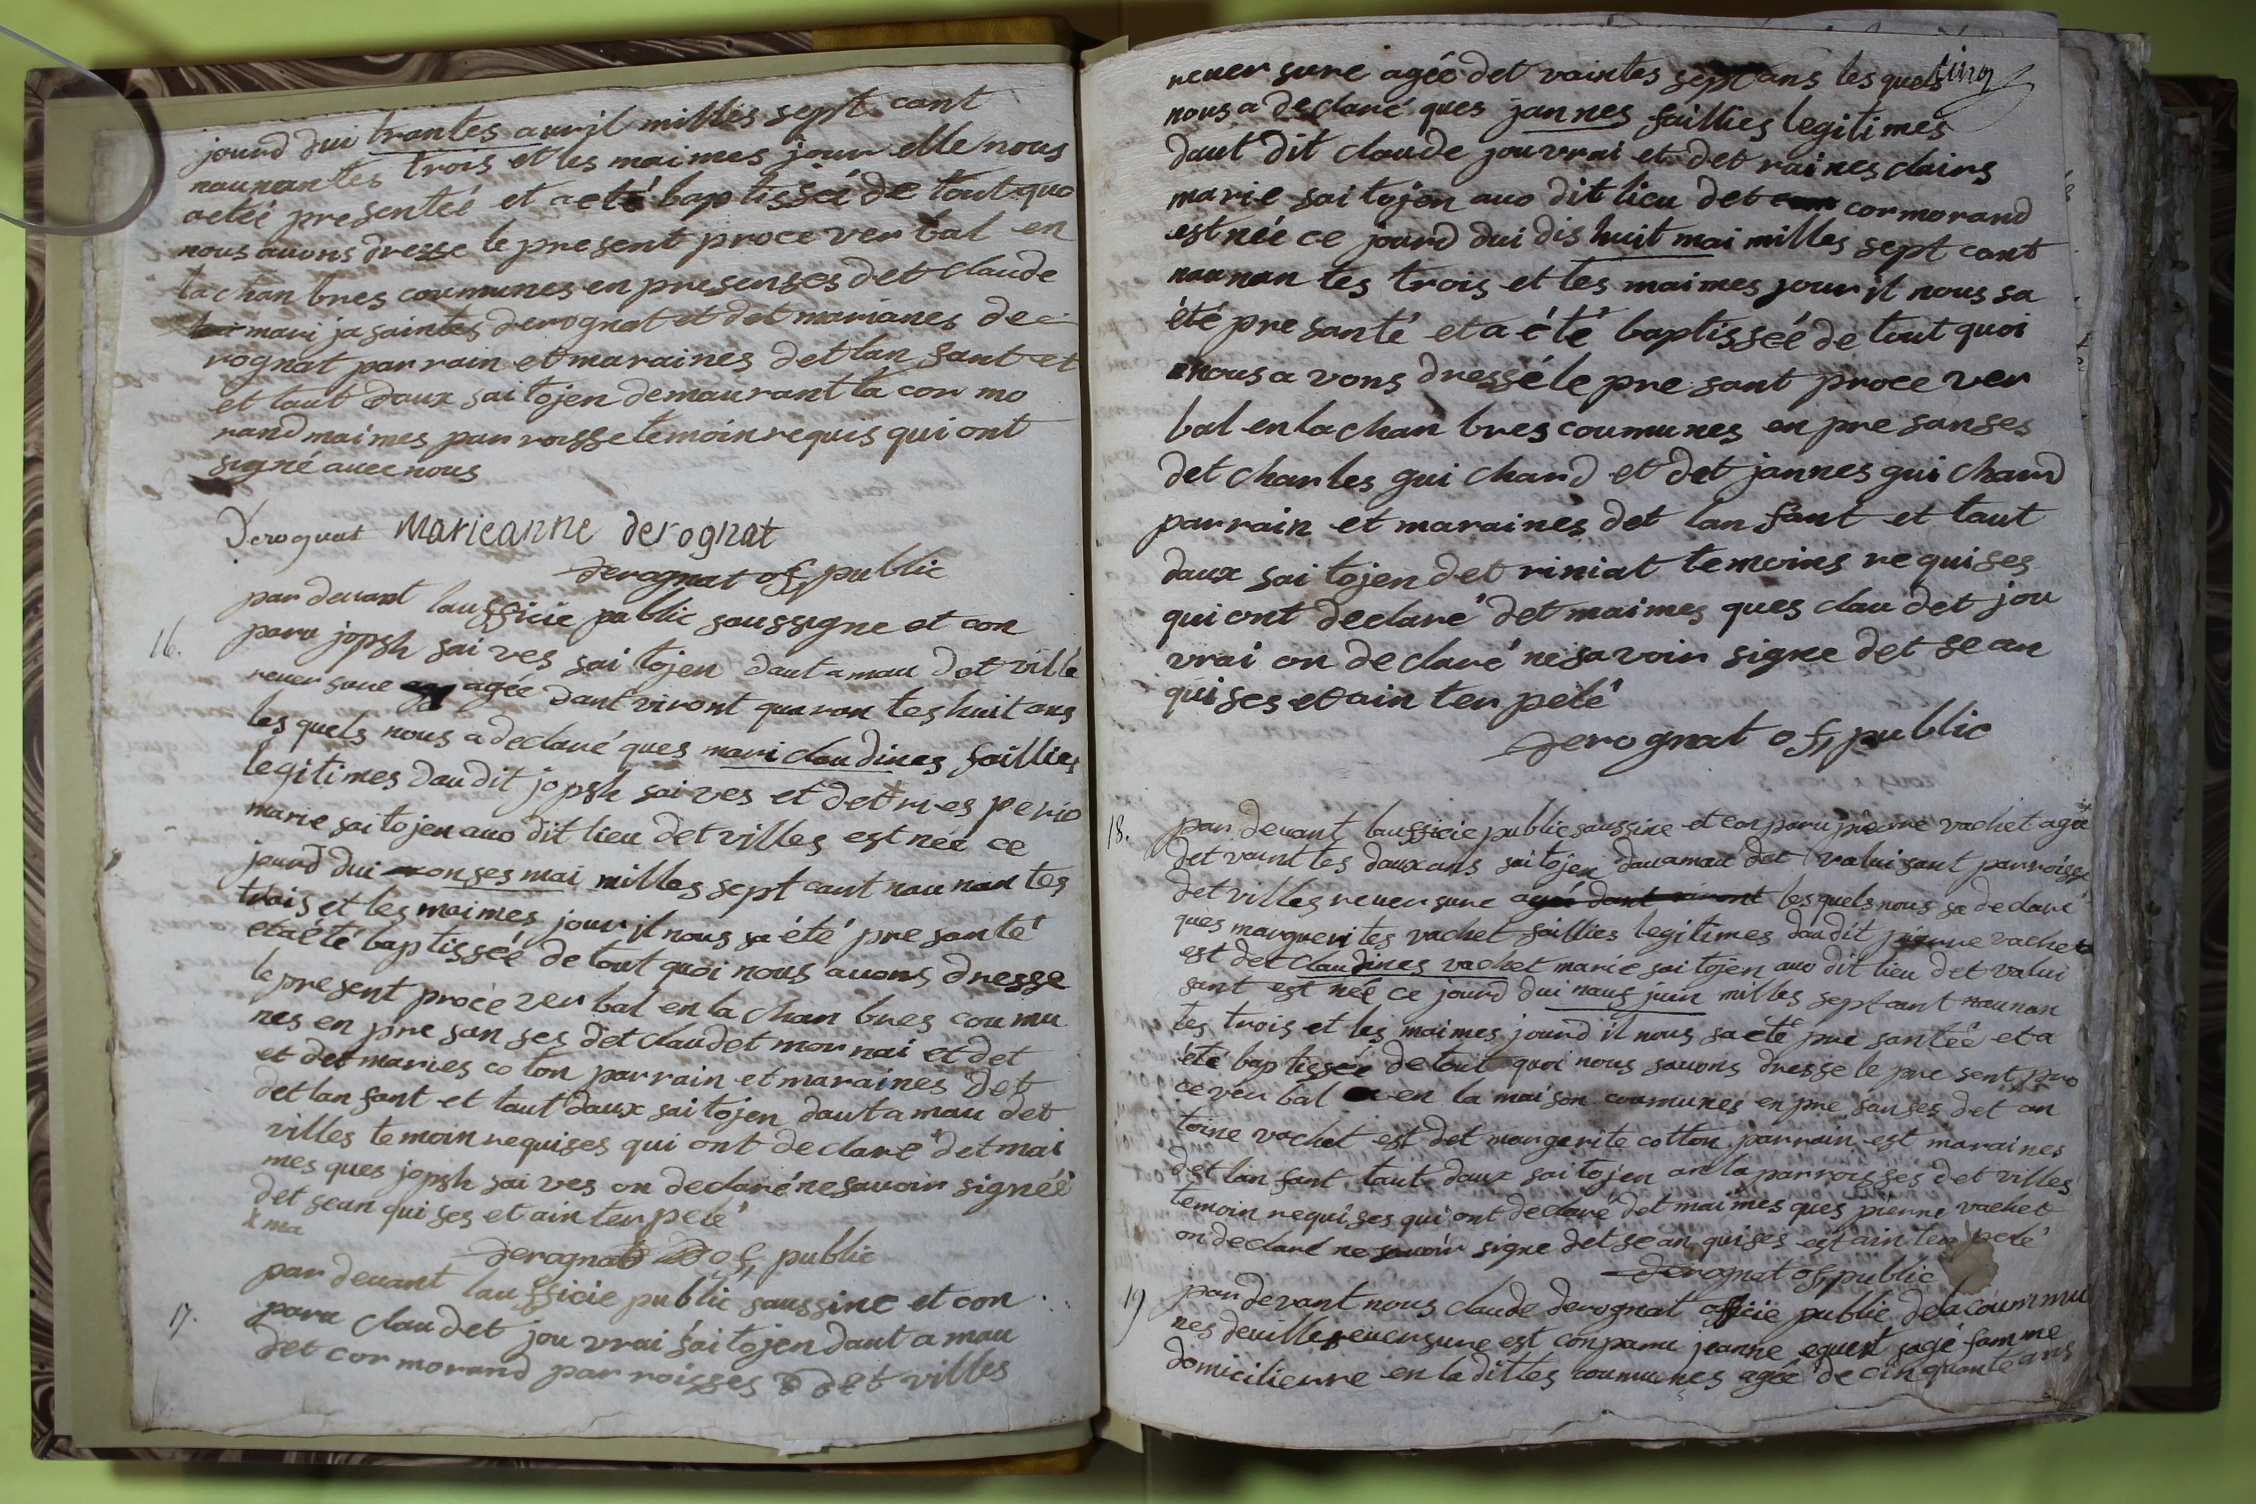 jourd dui trantes auril milles sept cant
naunantes trois et les maimes jour elle nous
aeteé presenteé et a eté baptisseé de tout quo
nous auons dresse le present proce ver bal en
la chan bres coumunes en presenses det claude
mari jasaintes derognat et det marianes de
rognat par rain et maraines det lan fant et
et taut daux sai tojen demaurant la cor mo
rand maimes par roisse temoin requis qui ont
signé auec nous
Derognat Marieanne derognat
derognat of, public
16. par deuant laufficie public saussigne et con
paru jopsh sai ves sai tojen daut a mau det ville
reuer sure agée dant viront quaran tes huit ans
les quels nous a declaré ques mari claudines faillies
legitimes dau dit jopsh sai ves et det ries perio
marie sai tojen auo dit lieu det villes est neé ce
jourd dui onses mai milles sept cant nau nan tes
trois et les maimes jour il nous sa été pre santé
et a été baptisseé de tout quoi nous auons dresse
le present proce ver bal en la chan bres coumu
nes en pre san ses det claudet mornai et det
et det maries coton par rain et maraines det
det lan fant et taut daux sai tojen daut a mau det
villes te moin requises qui ont declaré det mai
mes ques jopsh sai ves on declaré ne sauoir signeé
det sean qui ses et ain ter pelé
x ma
derognat of, public
17. par deuant laufficie public saussine et con
paru clau det jou vrai sai tojen daut a mau
det cor morand par roisses det villes
cinq
reuer sure agée det vaintes sept ans les quels
nous a declaré ques jannes faillies legitimes
daut dit claude jouvrai et det raines clairs
marie sai tojen auo dit lieu det cormorand
est neé ce jourd dui dis huit mai milles sept cant
naunan tes trois et les maimes jour il nous sa
été pre santé et a été baptisseé de tout quoi
nous a vons dressé le pre sant proce ver
bal en la chan bres coumunes en pre sanses
det charles gui chard et det jannes gui chard
parrain et maraines det lan fant et taut
daux sai tojen det riniat temoins re quises
qui ont declaré det maimes ques clau det jou
vrai on de claré ne savoir signe det se an
quises et ain ter pelé
derognat of, public
18. par deuant laufficie public saussine et con paru pierre vachet agée
det vaint tes daux ans sai tojen dauamau det valui sant parroisse
det villes reuer sure agée dant viront les quels nous sa declaré
ques marguerites vachet faillies legitimes dau dit pierre vachet
est det claudines vachet marie sai tojen auo dit lieu det valui
sant est neé ce jourd dui nauf juin milles sept cant naunan
tes trois et les maimes jourd il nous sa été pre santeé et a
été baptisseé de tout quoi nous sauons dresse le pre sent pro
ce ver bal en la maison coumunes en pre sanses det an
toine vachet est det margerite cotton parrain est maraines
det lan fant taut daux sai tojen an la parroisses det villes
temoin requises qui ont declaré det maimes ques pierre vachet
on declaré ne savoir signe det se an quises est ain ter pelé
derognat of, public
19 par devant nous claude derognat officié public de la coummu
nes de villes reuersure est conparu jeanne eguest sage famme
domicilienne en la dittes coumunes agéé de cinquante ans